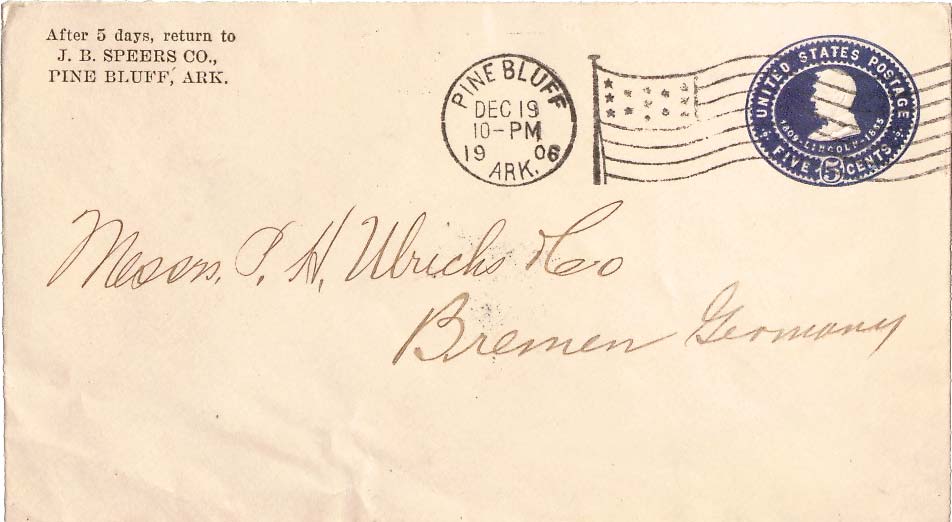 After 5 days, return to
J. B. SPEERS CO.,
PINE BLUFF, ARK.
PINE BLUFF
DEC 19
10-PM
19 06
ARK.
UNITED STATES POSTAGE
1809-LINCOLN-1865
FIVE 5 CENTS
Messrs. P. H. Ulrichs & Co
Bremen Germany